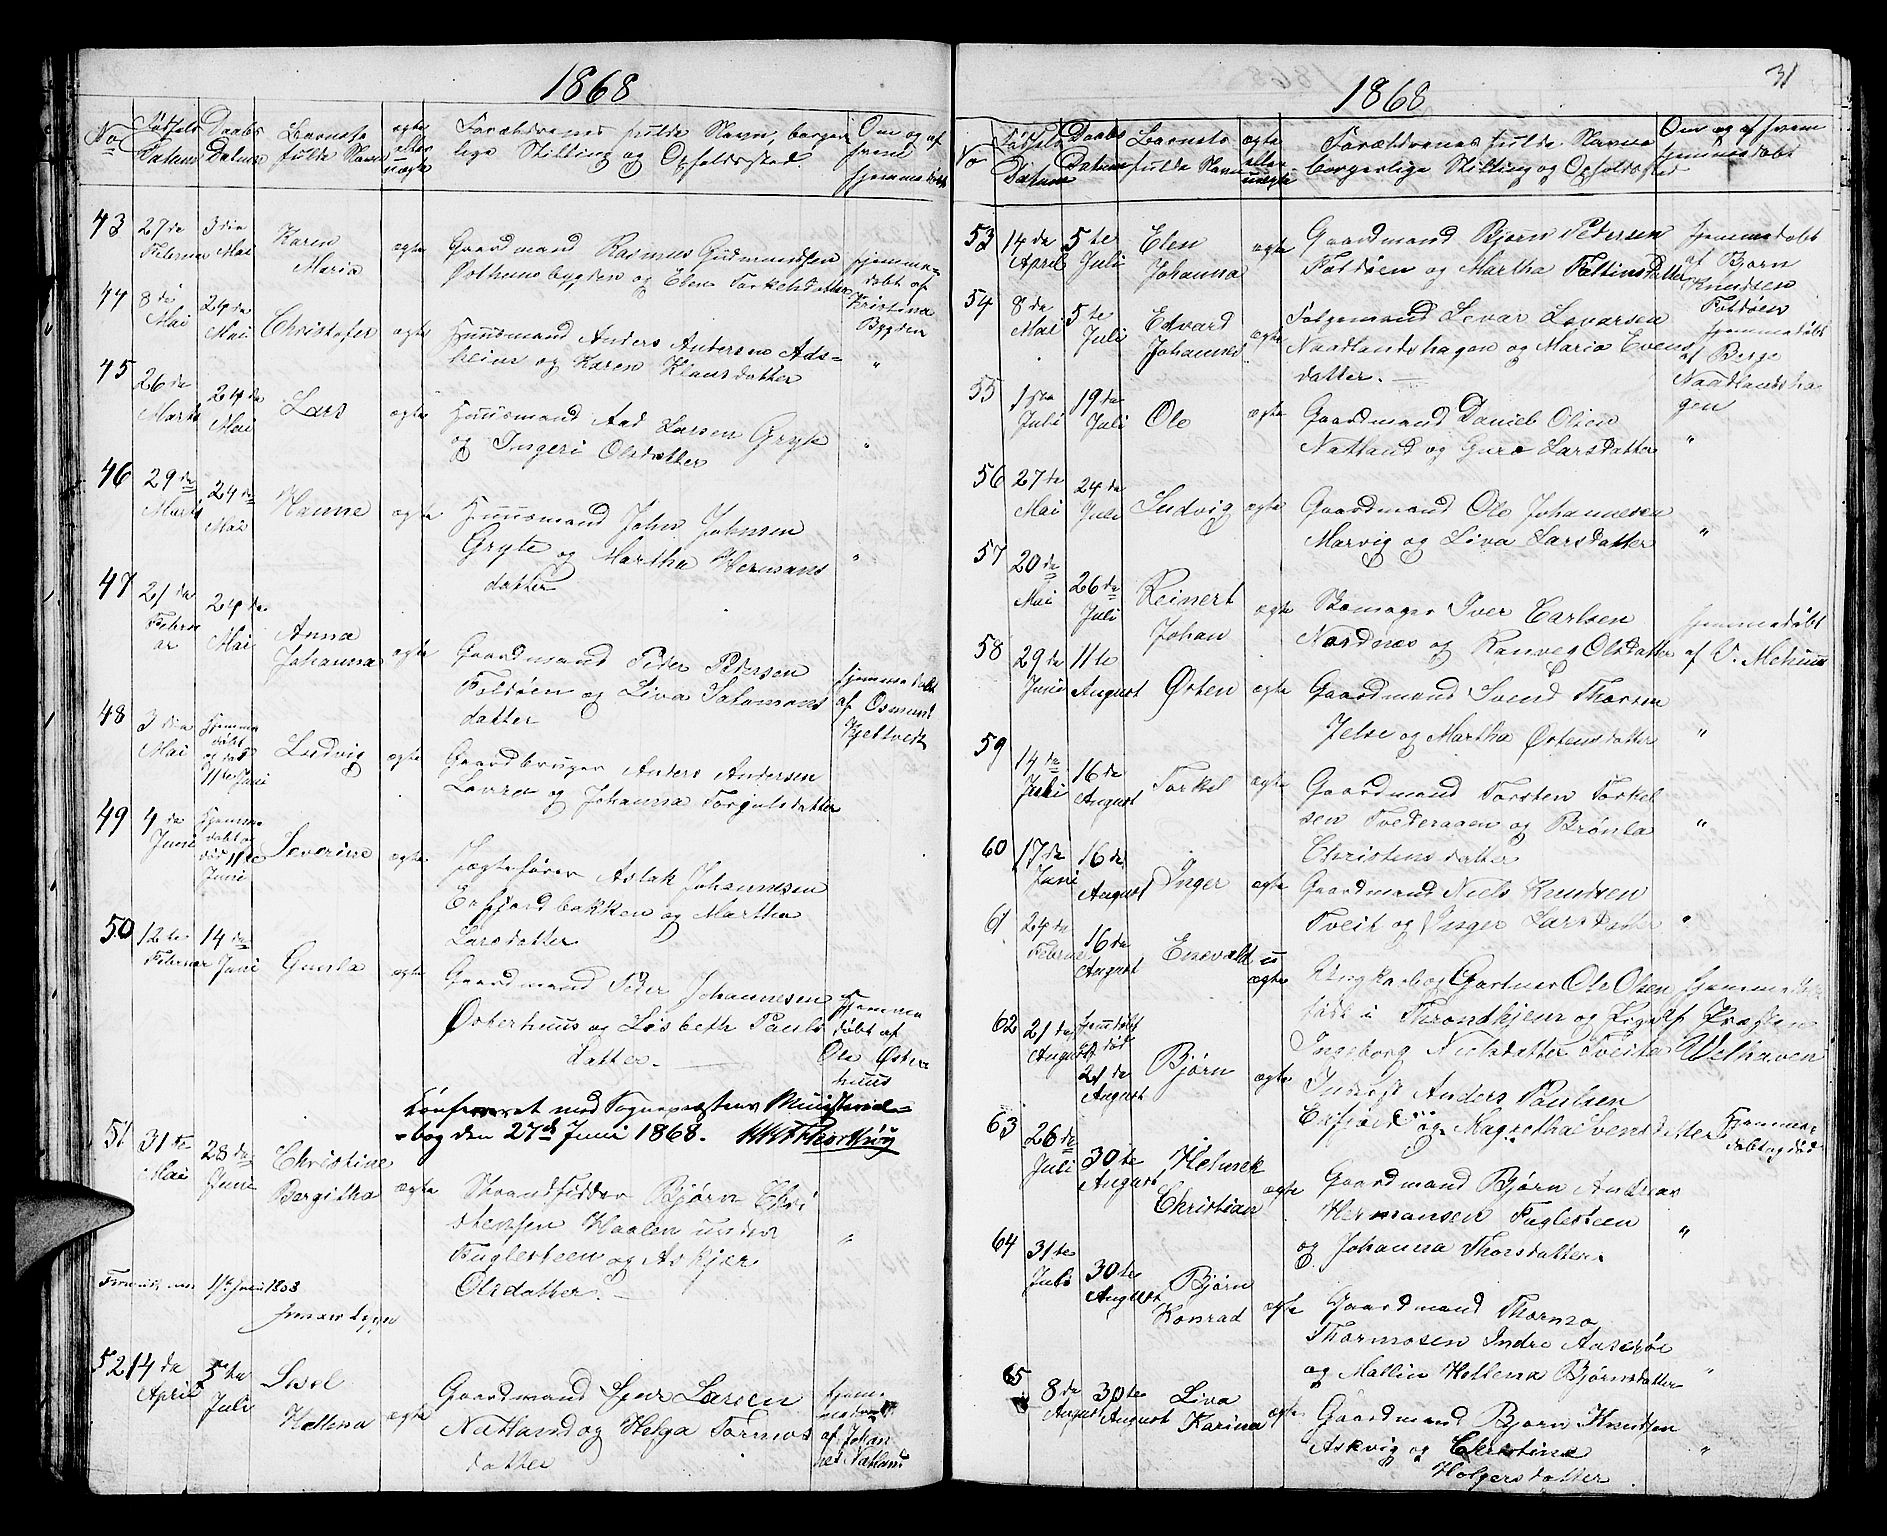 1868
No Fødsels Datum Daabs Datum Barnets fulde Navn ægte eller uægte Forældrenes fulde Navn, borgerlige Stilling og Opholdssted Om og af hvem hjemmedøbt
43 27de Februar 3die Mai Karen Maria ægte Gaardmand Rasmus Gudmundsen
Østhuusbygden og Elen Torkelsdatter hjemmedøbt af Kristina Bygden
44 8de Mai 24de Mai Christofer ægte Huusmand Anders Andersen Ads-
heim og Karen Klausdatter "
45 26de Marts 24de Mai Lars ægte Huusmand Aad Larsen Gryte
og Ingeri Olsdatter "
46 29de Marts 24de Mai Hanne ægte Huusmand John Johnsen
Gryte og Martha Hermans
datter "
47 21de Februar 24de Mai Anna Johanna ægte Gaardmand Peder Pedersen
Foldøen og Liva Salamons
datter hjemmedøbt af Osmund Hjeltveit
48 3die Mai Hjemmedøbt og død 11te Juni Ludvig ægte Gaardbruger Anders Andersen
Lovra og Johanna Torgalsdatter
49 4de Juni Hjemmedøbt og død 11te Juni Severine ægte Jægtefører Aslak Johannesen
Erfjordbakken og Martha
Larsdatter
50 12te Februar 14de Juni Gunla ægte Gaardmand Peder Johannesen
Østerhuus og Lisbeth Pauls
datter. Hjemmedøbt af Ole Østerhuus
Confereret med Sognepræstens Ministerial-
bog den 27de Juni 1868.
51 31te Mai 28de Juni Christine Bergitha ægte Strandsidder Bjørn Chri
stensen Haalen under
Fuglesteen og Askjær
Olsdatter. "
52 14de April 5te Juli Sisel Hellena ægte Gaardmand Iver Larsen
Natland og Helga Tormos
datter hjemmedøbt af Johannes Natland
31
1868
No Fødsels Datum Daabs Datum Barnets fulde Navn ægte eller uægte Forældrenes fulde Navne borgerlige Stilling og Opholdssted Om og af hvem hjemmedøbt
53 14de April 5te Juli Elen Johanna ægte Gaardmand Bjørn Pedersen
Foldøen og Martha Foltinsdatter Hjemmedøbt af Bjørn Knudsen Foldøen
54 8de Mai 5te Juli Edvard Johannes ægte Folgemand Sevar Levarsen
Naadlandshagen og Maria Evens
datter. hjemmedøbt af Berge Naadlandshagen
55 1ste Juli 19de Juli Ole ægte Gaardmand Daniel Olsen
Natland og Guro Larsdatter "
56 27de Mai 24de Juli Ludvig ægte Gaardmand Ole Johannesen
Marvig og Liva Larsdatter "
57 20de Mai 26de Juli Reinert Johan ægte Skomager Iver Carlsen
Nordnæs og Ranveg Olsdatter hjemmedøbt af V. Mehuus
58 29de Juni 11te August Østen ægte Gaardmand Svend Thorsen
Jelse og Martha Østensdatter "
59 14de Juli 16de August Torkel ægte Gaardmand Torsten Torkel
sen Tvederaaen og Brønla
Christensdatter "
60 17de Juni 16de August Inger ægte Gaardmand Niels Knudsen
Tveit og Inger Larsdatter "
61 24de Februar 16de August Enevald uægte Ungkarl og Gartner Ole Olsen
i Throndhjem og Pige
Ingeborg Nielsdatter Tveita Hjemmedøbt af Præsten Welhaven
62 21de August Hjemdøbt og død 21de August Bjørn ægte Inderst Anders Paulsen
Erfjord og Magretha Ivensdatter Hjemmedøbt og død
63 26de Juli 30te August Helmek Christian ægte Gaardmand Bjørn Andreas
Hermansen Fuglesteen
og Johanna Thorsdatter. "
64 31te Juli 30te August Bjørn Konrad ægte Gaardmand Thormo
Thormosen Indre Aaserøe
og Mallin Hellena Bjørnsdatter "
65 8de August 30te August Liva Karina ægte Gaardmand Bjørn Knudsen
Askvig og Christina
Holgersdatter "